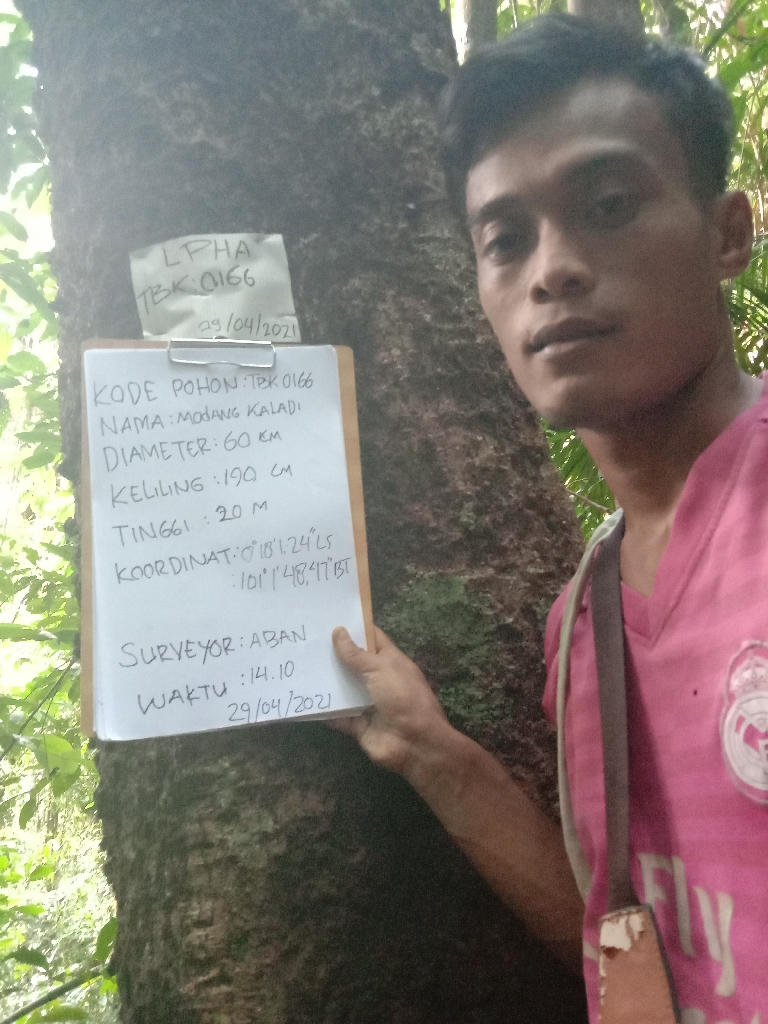 LPHA
TBK:0166
29/04/2021
KODE POHON:TBK 0166
NAMA:MODANG KALADI
DIAMETER:60 KM
KELILING:190 CM
TINGGI:20 M
KOORDINAT:0°18'1.24"LS
:101°1'48,47"BT
SURVEYOR:ABAN
WAKTU:14.10
29/04/2021
Fly